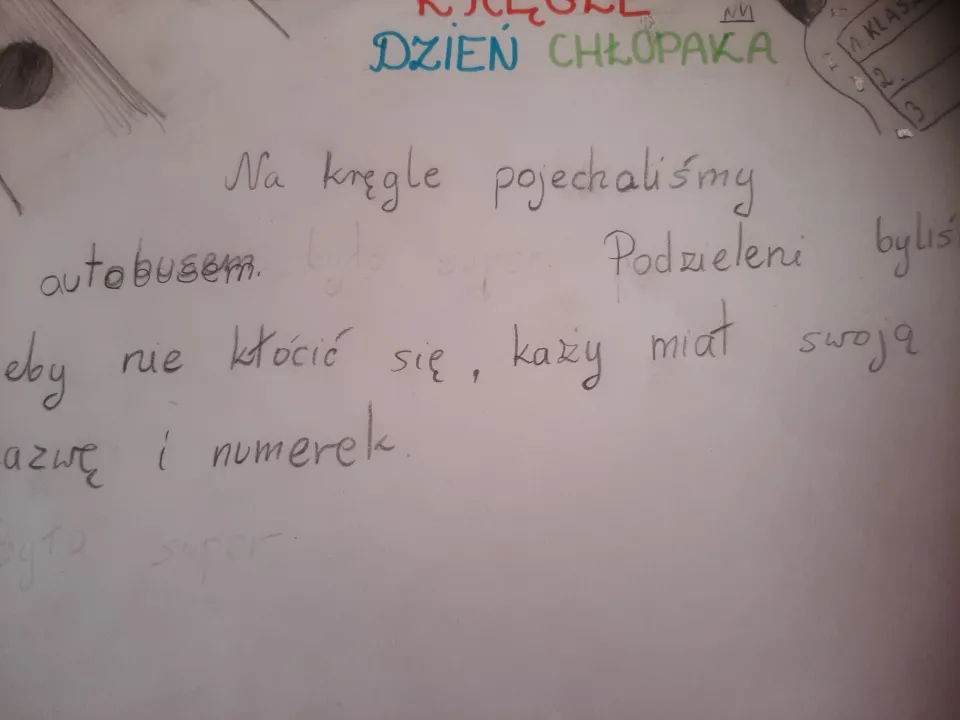 KRĘGLE
DZIEŃ CHŁOPAKA
1. KLASA
2.
3
Na kręgle pojechaliśmy
autobusem. Podzieleni byliś
eby nie kłócić się, każy miał swoją
azwę i numerek.
było super